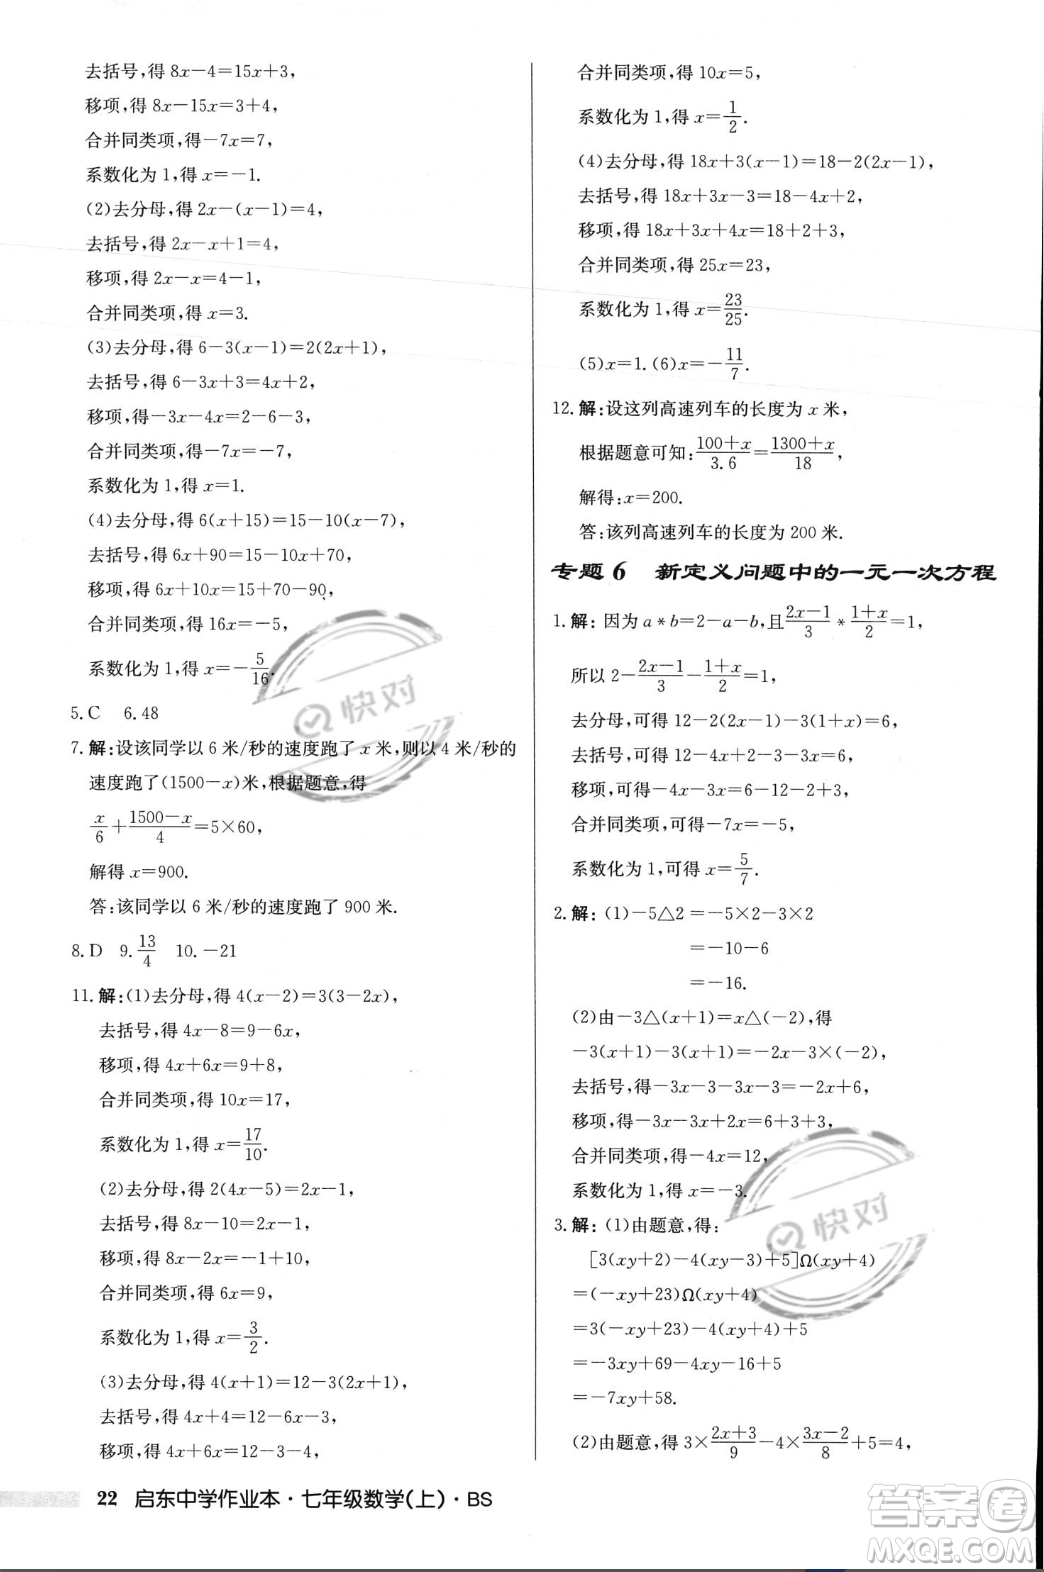 去括号,得 8x－4＝15x＋3,
移项,得 8x－15x＝3＋4,
合并同类项,得－7x＝7,
系数化为 1,得 x＝－1.
(2)去分母,得 2x－(x－1)＝4,
去括号,得 2x－x＋1＝4,
移项,得 2x－x＝4－1,
合并同类项,得 x＝3.
(3)去分母,得 6－3(x－1)＝2(2x＋1),
去括号,得 6－3x＋3＝4x＋2,
移项,得－3x－4x＝2－6－3,
合并同类项,得－7x＝－7,
系数化为 1,得 x＝1.
(4)去分母,得 6(x＋15)＝15－10(x－7),
去括号,得 6x＋90＝15－10x＋70,
移项,得 6x＋10x＝15＋70－90,
合并同类项,得 16x＝－5,
系数化为 1,得 x＝－5/16.
5.C 6.48
7.解:设该同学以 6 米/秒的速度跑了 x 米,则以 4 米/秒的
速度跑了(1500－x)米,根据题意,得
x/6＋(1500－x)/4＝5×60,
解得 x＝900.
答:该同学以 6 米/秒的速度跑了 900 米.
8.D 9.13/4 10.－21
11.解:(1)去分母,得 4(x－2)＝3(3－2x),
去括号,得 4x－8＝9－6x,
移项,得 4x＋6x＝9＋8,
合并同类项,得 10x＝17,
系数化为 1,得 x＝17/10.
(2)去分母,得 2(4x－5)＝2x－1,
去括号,得 8x－10＝2x－1,
移项,得 8x－2x＝－1＋10,
合并同类项,得 6x＝9,
系数化为 1,得 x＝3/2.
(3)去分母,得 4(x＋1)＝12－3(2x＋1),
去括号,得 4x＋4＝12－6x－3,
移项,得 4x＋6x＝12－3－4,
22 启东中学作业本·七年级数学(上)·BS
合并同类项,得 10x＝5,
系数化为 1,得 x＝1/2.
(4)去分母,得 18x＋3(x－1)＝18－2(2x－1),
去括号,得 18x＋3x－3＝18－4x＋2,
移项,得 18x＋3x＋4x＝18＋2＋3,
合并同类项,得 25x＝23,
系数化为 1,得 x＝23/25.
(5)x＝1.(6)x＝－11/7
12.解:设这列高速列车的长度为 x 米,
根据题意可知:(100＋x)/3.6＝(1300＋x)/18,
解得:x＝200.
答:该列高速列车的长度为 200 米.
专题 6 新定义问题中的一元一次方程
1.解: 因为 a＊b＝2－a－b,且(2x－1)/3＊(1＋x)/2＝1,
所以 2－(2x－1)/3－(1＋x)/2＝1,
去分母,可得 12－2(2x－1)－3(1＋x)＝6,
去括号,可得 12－4x＋2－3－3x＝6,
移项,可得－4x－3x＝6－12－2＋3,
合并同类项,可得－7x＝－5,
系数化为 1,可得 x＝5/7.
2.解: (1)－5△2＝－5×2－3×2
＝－10－6
＝－16.
(2)由－3△(x＋1)＝x△(－2),得
－3(x＋1)－3(x＋1)＝－2x－3×(－2),
去括号,得－3x－3－3x－3＝－2x＋6,
移项,得－3x－3x＋2x＝6＋3＋3,
合并同类项,得－4x＝12,
系数化为 1,得 x＝－3.
3.解: (1)由题意,得:
[3(xy＋2)－4(xy－3)＋5]Ω(xy＋4)
＝(－xy＋23)Ω(xy＋4)
＝3(－xy＋23)－4(xy＋4)＋5
＝－3xy＋69－4xy－16＋5
＝－7xy＋58.
(2)由题意,得 3×(2x＋3)/9－4×(3x－2)/8＋5＝4,
快对
快对
答案圈
MXQE.COM